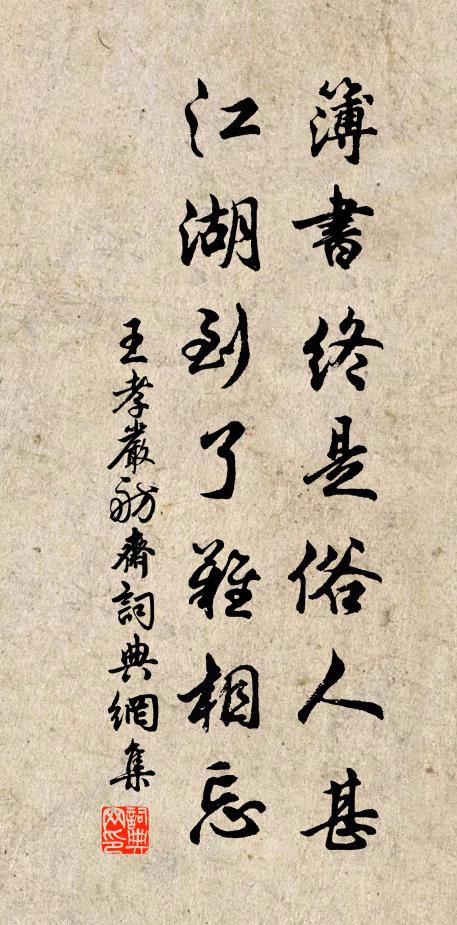 簿書終是俗人甚
江湖到了難相忘
王孝嚴舫齋詞典網集
詞典网印